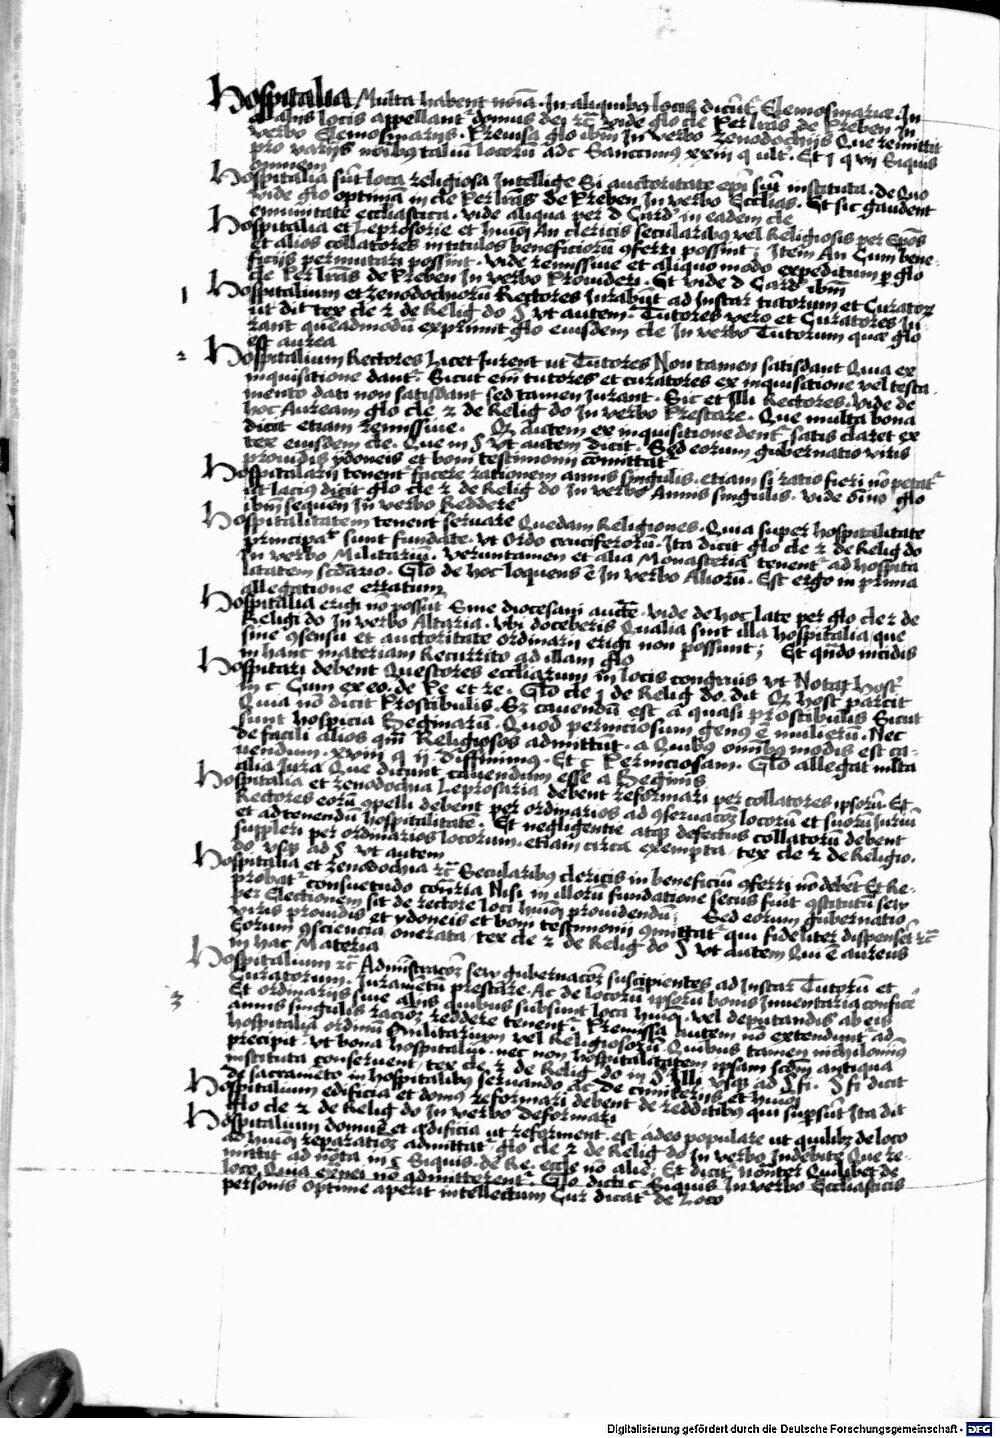 Hospitalia Multa habent noia. In aliquibus locis dicunt Elemosinariae. In
alijs locis appellant domus dei etc vide glo cle Per lras de Preben In
verbo Elemosinarijs. Premissa glo ibm In verbo zenodochijs Que remittit
pro varijs noibus talium locorum adc Sanctimus xxiij q ult. Et j q vij Siquis
omnium
Hospitalia sunt loca religiosa Intellige Si auctoritate epi sunt instituta. de Quo
vide glo optimam in cle Per lras de Preben In verbo Ecclias. Et sic gaudent
emunitate ecclastica. vide aliqua per d Card in eadem cle
Hospitalia et Leprosorie et huiusmodi An clericis secularibus vel Religiosis per Epos
et alios collatores in titulos beneficiorum conferri possint; Item An Cum bene-
ficijs permutari possint. vide remissiue et aliquo modo expeditum per glo
cle Per lras de Preben In verbo Prouideri. Et vide d Card ibm
1 Hospitalium et zenodochiorum Rectores Iurabunt ad Instar tutorum et Curatorum
ut dit tex cle 2 de Relig do § vt autem. Tutores vero et Curatores Iu-
rant queadmodum exprimit glo eiusdem cle In verbo Tutorum quae glo
est aurea
2 Hospitalium Rectores Licet Iurent ut Tutores Non tamen satisdant Quia ex
inquisitione dant. Sicut eim tutores et curatores ex inquisitione vel testa
mento dati non satisdant sed tamen Iurant. Sic et Illi Rectores. vide de
hoc Auream glo cle 2 de Relig do In verbo Prestare. Que multa bona
dicit etiam remissiue. Q autem ex inquisitione dent satis claret ex
tex eiusdem cle. Que in § vt autem dicit. Sed eorum gubernatio viris
prouidis ydoneis et boni testimonij comittat
Hospitalarij tenent facere rationem annis singulis. etiam si ratio fieri no petat
ut lacius dicit glo cle 2 de Relig do In verbo Annis singulis. vide omino glo
ibm sequen In verbo Reddere
Hospitalitatem tenent seruare Quedam Religiones. Quia super hospitalitate
principar sunt fundate. vt Ordo cruciferorum. Ita dicit glo cle 2 de Relig do
In verbo Militarium. Veruntamen et alia Monasteria tenent ad hospita
litatem scdario. Glo de hoc loquens e In verbo Aliorum. Est ergo in prima
allegatione erratum
Hospitalia erigi no possut Sine diocesani aucte. vide de hoc late per glo cle 2 de
Religi do In verbo Altaria. Vbi doceberis Qualia sint illa hospitalia que
sine consensu et auctoritate ordinarij erigi non possunt; Et quando incidis
in hanc materiam Recurrito ad illam glo
Hospitari debent Questores eccliarum in locis congruis vt Notat Host
in c Cum ex eo. de Pe et re. Glo cle j de Relig do. dit Q Host parcit
Quia no dicit Prostibulis. Sz cauendum est a quasi prostibulis Sicut
sunt hospicia Beginarum. Quod perniciosum genus e mulierum. Nec
de facili alios qm Religiosos admittut. a Quibus omibus modis est ca-
uendum. xviij q ij. Diffinimus. Et c Perniciosam. Glo allegat mlta
alia Iura Que dicunt cauendum esse a Beginis
Hospitalia et zenodochia Leprosaria debent reformari per collatores ipsorum. Et
Rectores eorum compelli debent per ordinarios ad conseruacoem locorum et suorum Iurium
et ad tenendum hospitalitate. Et negligentie atque defectus collatorum debent
suppleri per ordinarios locorum. etiam circa exempta. tex cle 2 de Religio.
do. vsque ad § vt autem
Hospitalia et zenodochia etc Secularibus clericis in beneficium conferri no debet Et Re-
probat consuetudo contraria Nisi in illorum fundatione secus fuit constitutum seu
per Electionem sit de rectore loci huiusmodi prouidendum; Sed eorum gubernatio
viris prouidis et ydoneis et boni testimonij committat qui fideliter dispenset etc
Eorum consciencia onerata. tex cle 2 de Relig do § vt autem Qui e aureus
in hac Materia
Hospitalium etc Administracoem seu gubernacoem suscipientes ad Instar Tutorum et
3 Curatorum. Iurametum prestare. Ac de locorum ipsorum bonis Inuentaria confice
Et ordinarijs siue alijs quibus subsunt loca huiusmodi. vel deputandis ab eis
annis singulis racioem reddere tenent. Premissa autem no extendunt ad
hospitalia ordinum Militarium vel Religiosorum Quibus tamen nichilominus
precipit. vt bona hospitalium. nec non hospitalitatem ipsam scdm antiqua
instituta conseruent. tex cle 2 de Relig do in § Illi vsque ad § fi. § fi dicit
de sacrameto in hospitalibus seruando ac de cimiterijs et huiusmodi
Hospitalium edificia et domus reformari debent de redditibus qui supersunt Ita dit
glo cle 2 de Relig do In verbo deformari
Hospitalium domus et edificia ut reforment. est actio populare ut quilibet de loco
ad huiusmodi reparatioem admittat. glo cle 2 de Relig do In verbo Indebite Que re-
mittit ad nota in c Siquis. de Re. eccle no alie. Et dicit noanter Quilibet de
loco Quia exnei no admitterent. Glo dicti c Siquis In verbo Ecclasticis
personis Optime aperit intellectum Cur dicat de Loco
Digitalisierung gefördert durch die Deutsche Forschungsgemeinschaft - DFG